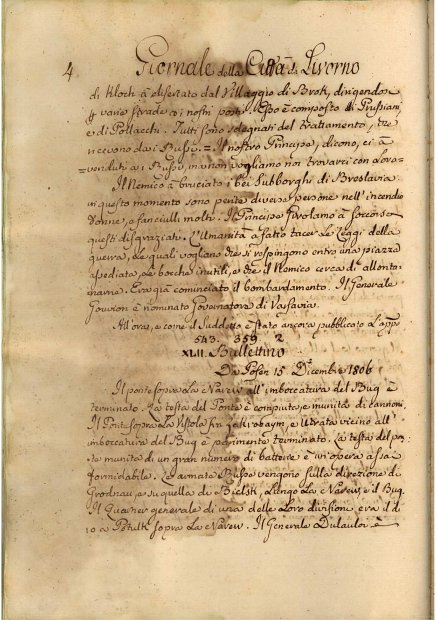 4 Giornale della Città di Livorno
di Kloch à disertato dal Villaggio di Brok, dirigendosi
p varie strade a i nostri posti. Esso è composto di Prussiani,
e di Pollacchi. Tutti sono sdegnati del trattamento, che
ricevono da i Russi. = Il nostro Principe, dicono, ci à
=venduti a i Russi, ma non vogliamo noi trovarci con loro=
Il Nemico à bruciato i bei Subborghi di Breslavia:
in questo momento sono perite diverse persone nell'incendio
donne, e fanciulli molti. Il Principe Girolamo à soccorso
questi disgraziati. L'Umanità à fatto tacer le Leggi della
guerra, le quali vogliano che si rispingono entro una piazza
assediata le bocche inutili, e che il Nemico cerca di allonta-
narne. Era già cominciato il bombardamento. Il Generale
Gouvion è nominato Governatore di Varsavia.
All'orai, e come il Suddetto è stato ancora pubblicato l'app
543. 359 2
XLII. Bullettino
Da Posen 15 Dicembre 1806
Il ponte sopra la Narew all'imboccatura del Bug è
terminato. La testa del Ponte è compiuta, e munita di cannoni
Il Ponte sopra la Vistola fra e Utrata vicino all'
imboccatura del Bug è parimente terminato. La testa del pon-
te munita di un gran numero di batterie è un'opera assai
formidabile. Le armate Russe vengono sulla direzione di
Grodnau, e su quella di Bielsk, lungo la Narew, e il Bug.
Il Quartier generale di una delle loro divisioni era il di
10 a Pstulk sopra la Narew. Il Generale Dulaulor è